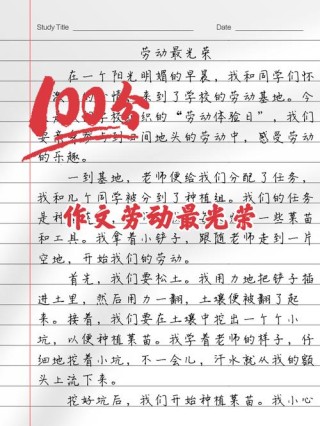 Study Title
Date
劳动最光荣
在一个阳光明媚的早晨，我和同学们怀
来到了学校的劳动基地。今
织的“劳动体验日”，我们
要亲 到田间地头的劳动中，感受劳动
的乐趣。
100分
一到基地，老师便给我们分配了任务，
我和几个同学被分到了种植组。我们的任务
是 一些菜苗
作文劳动最光荣
和工具。我拿着小铲子，跟随老师走到一片
空地，开始我们的劳动。
首先，我们要松土。我用力地把铲子插
进土里，然后用力一翻，土壤便被翻了起
来。接着，我们要在土壤中挖出一个个小
坑，以便种植菜苗。我学着老师的样子，仔
细地挖着小坑，不一会儿，汗水就从我的额
头上流下来。
挖好坑后，我们开始种植菜苗。我小心